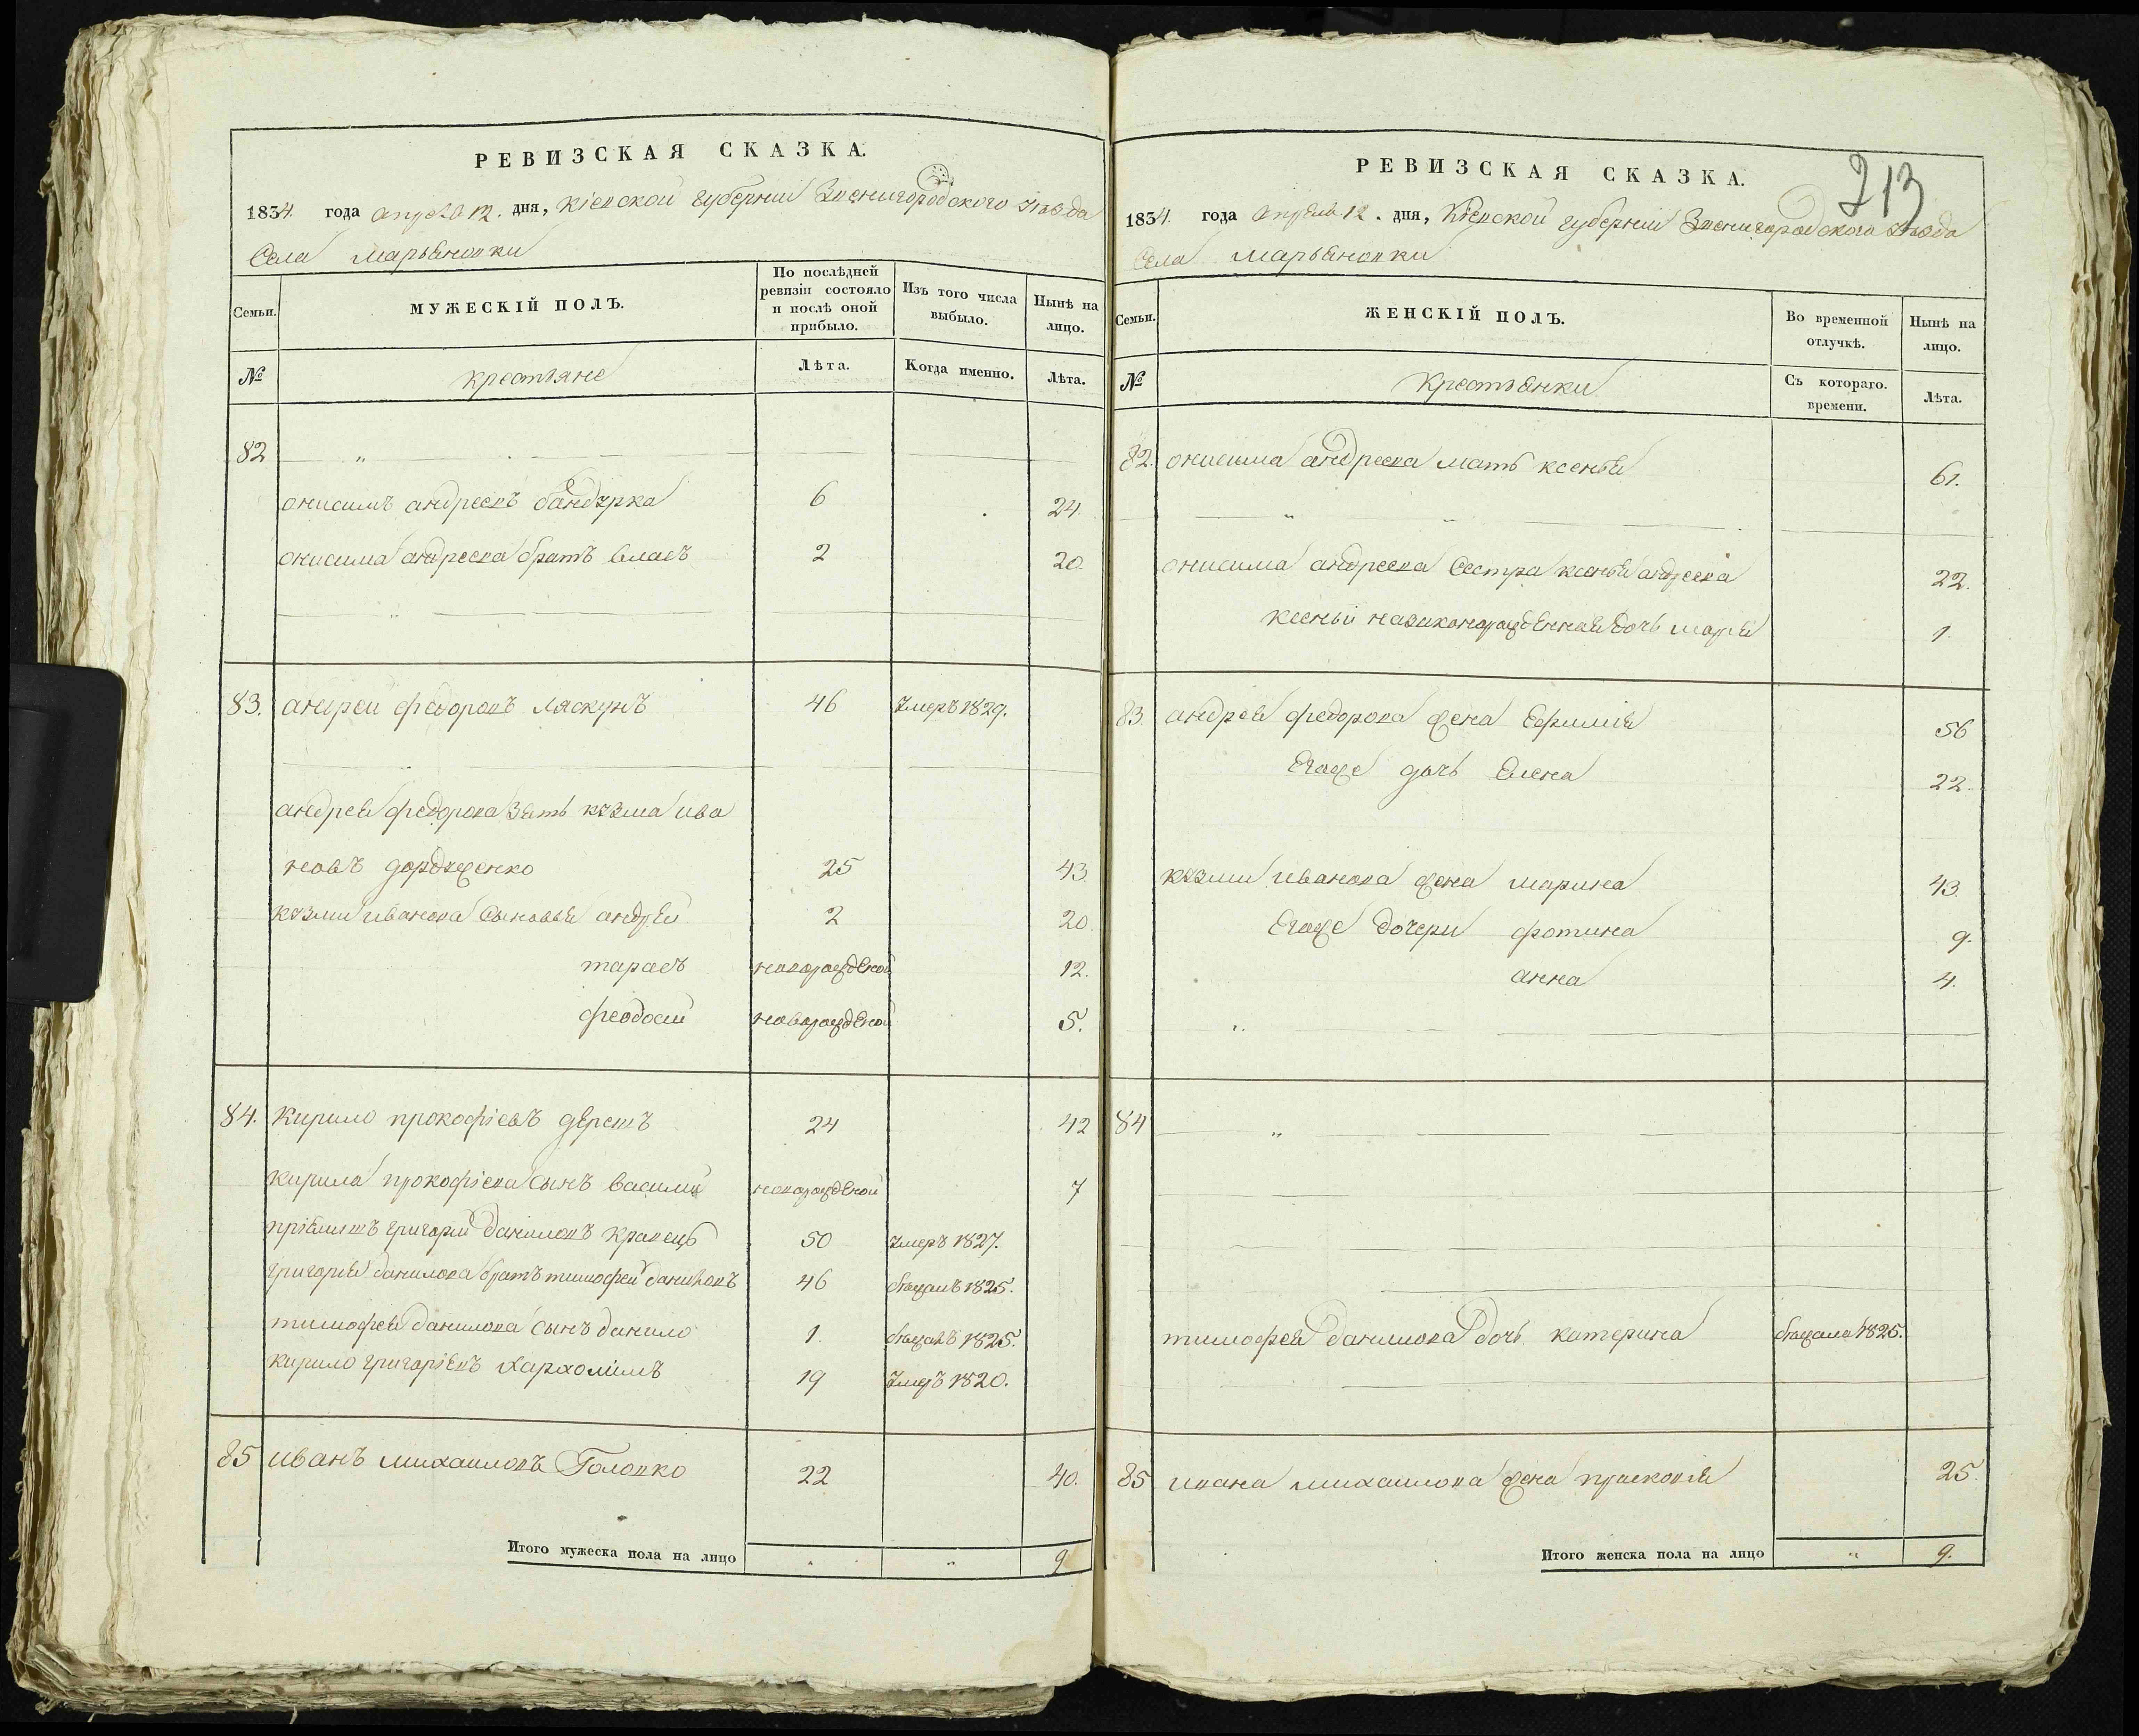 РЕВИЗСКАЯ СКАЗКА.
1834. года апреля 12. дня, Кіевской губерніи Звенигородского уѣзда
Села Марьяновки
Семьи.
МУЖЕСКІЙ ПОЛЪ.
По послѣдней ревизіи состояло и послѣ оной прибыло.
Изъ того числа выбыло.
Нынѣ на лицо.
№
крестьяне
Лѣта.
Когда именно.
Лѣта.
82 „
онисимъ андреевъ бандурка 6 24.
онисима андреева братъ власъ 2 20.
„
83. андрей федоровъ ляскунъ 46 умеръ 1829.
андрея федорова зять кузма ива
новъ 25 43.
кузми иванова сыновья андрей 2 20.
тарасъ новорожденой 12.
феодосій новорожденой 5.
84. кирило прокофіевъ 24 42
кирила прокофіева сынъ василій новорожденой 7
григорій даниловъ кравець 50 умеръ 1827.
григорія данилова братъ тимофей даниловъ 46 бѣжалъ 1825.
тимофея данилова сынъ данило 1. бѣжалъ 1825.
кирило григоріевъ 19 умеръ 1820.
85 иванъ михаиловъ Головко 22 40.
Итого мужеска пола на лицо „ „ 9
213
РЕВИЗСКАЯ СКАЗКА.
1834. года апреля 12. дня, Кіевской губерніи Звенигородского уѣзда
Села Марьяновки
Семьи.
ЖЕНСКІЙ ПОЛЪ.
Во временной отлучкѣ.
Нынѣ на лицо.
№
Крестьянки
Съ котораго. времени.
Лѣта.
82. онисима андреева мать ксенья 61.
„
онисима андреева сестра ксенья андреева 22.
ксеньи незаконорожденная дочь марья 1.
83. андрея федорова жена Ефимія 56
Егоже дочь Елена 22.
кузми иванова жена марина 43.
Егоже дочери фотина 9.
анна 4.
„
84 „
тимофея данилова дочь катерина бѣжала 1825.
85 ивана михаилова жена прасковія 25.
Итого женска пола на лицо „ 9.